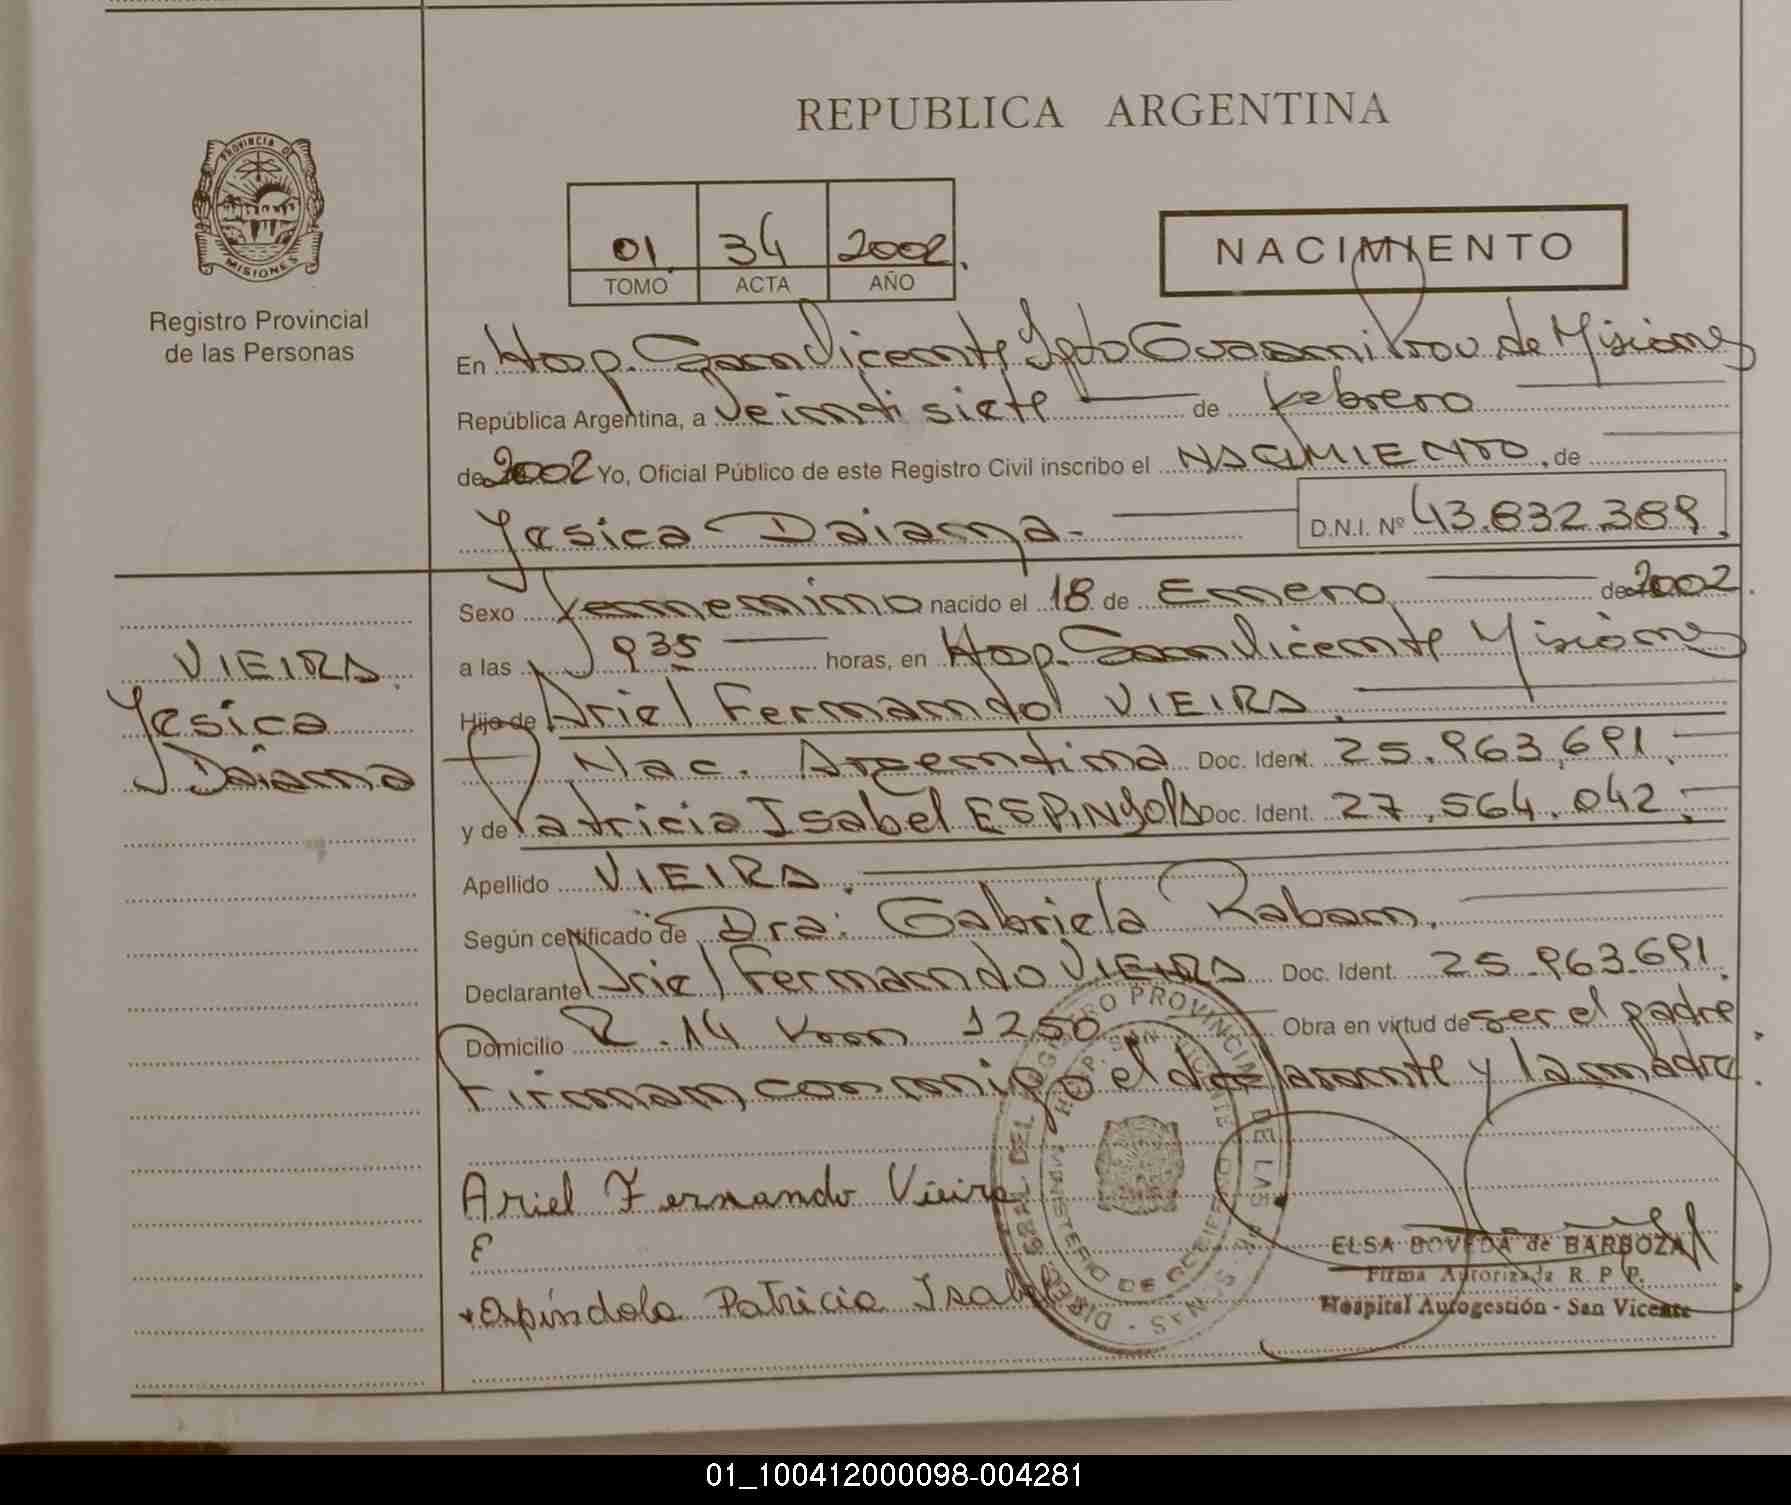 REPUBLICA ARGENTINA
PROVINCIA DE
MISIONES
Registro Provincial
de las Personas
01 34 2002.
TOMO ACTA AÑO
NACIMIENTO
En Hosp. San Vicente Dpto Guarani Prov. de Misiones
República Argentina, a Veintisiete de febrero
de 2002 Yo, Oficial Público de este Registro Civil inscribo el NACIMIENTO. de
Yesica Daiana.- D.N.I. Nº 43.832.389.
VIEIRA
Yesica
Daiana
Sexo femenino nacido el 18 de Enero de 2002.
a las 935 horas, en Hosp. San Vicente Misiones
Hijo de Ariel Fernando VIEIRA.
Nac. Argentina Doc. Ident. 25.963.691.
y de Patricia Isabel ESPINDOLA Doc. Ident. 27.564.042.
Apellido VIEIRA.
Según certificado de Dra: Gabriela Raban.
Declarante Ariel Fernando VIEIRA Doc. Ident. 25.963.691.
Domicilio R.14 Km 1250 Obra en virtud de ser el padre.
Firman conmigo el declarante y la madre.
Ariel Fernando Vieira
E
spíndola Patricia Isabel
HOSP. SAN VICENTE
MINISTERIO DE GOBIERNO
ELSA BOVEDA de BARBOZA
Firma Autorizada R. P. P.
Hospital Autogestión - San Vicente
01_100412000098-004281